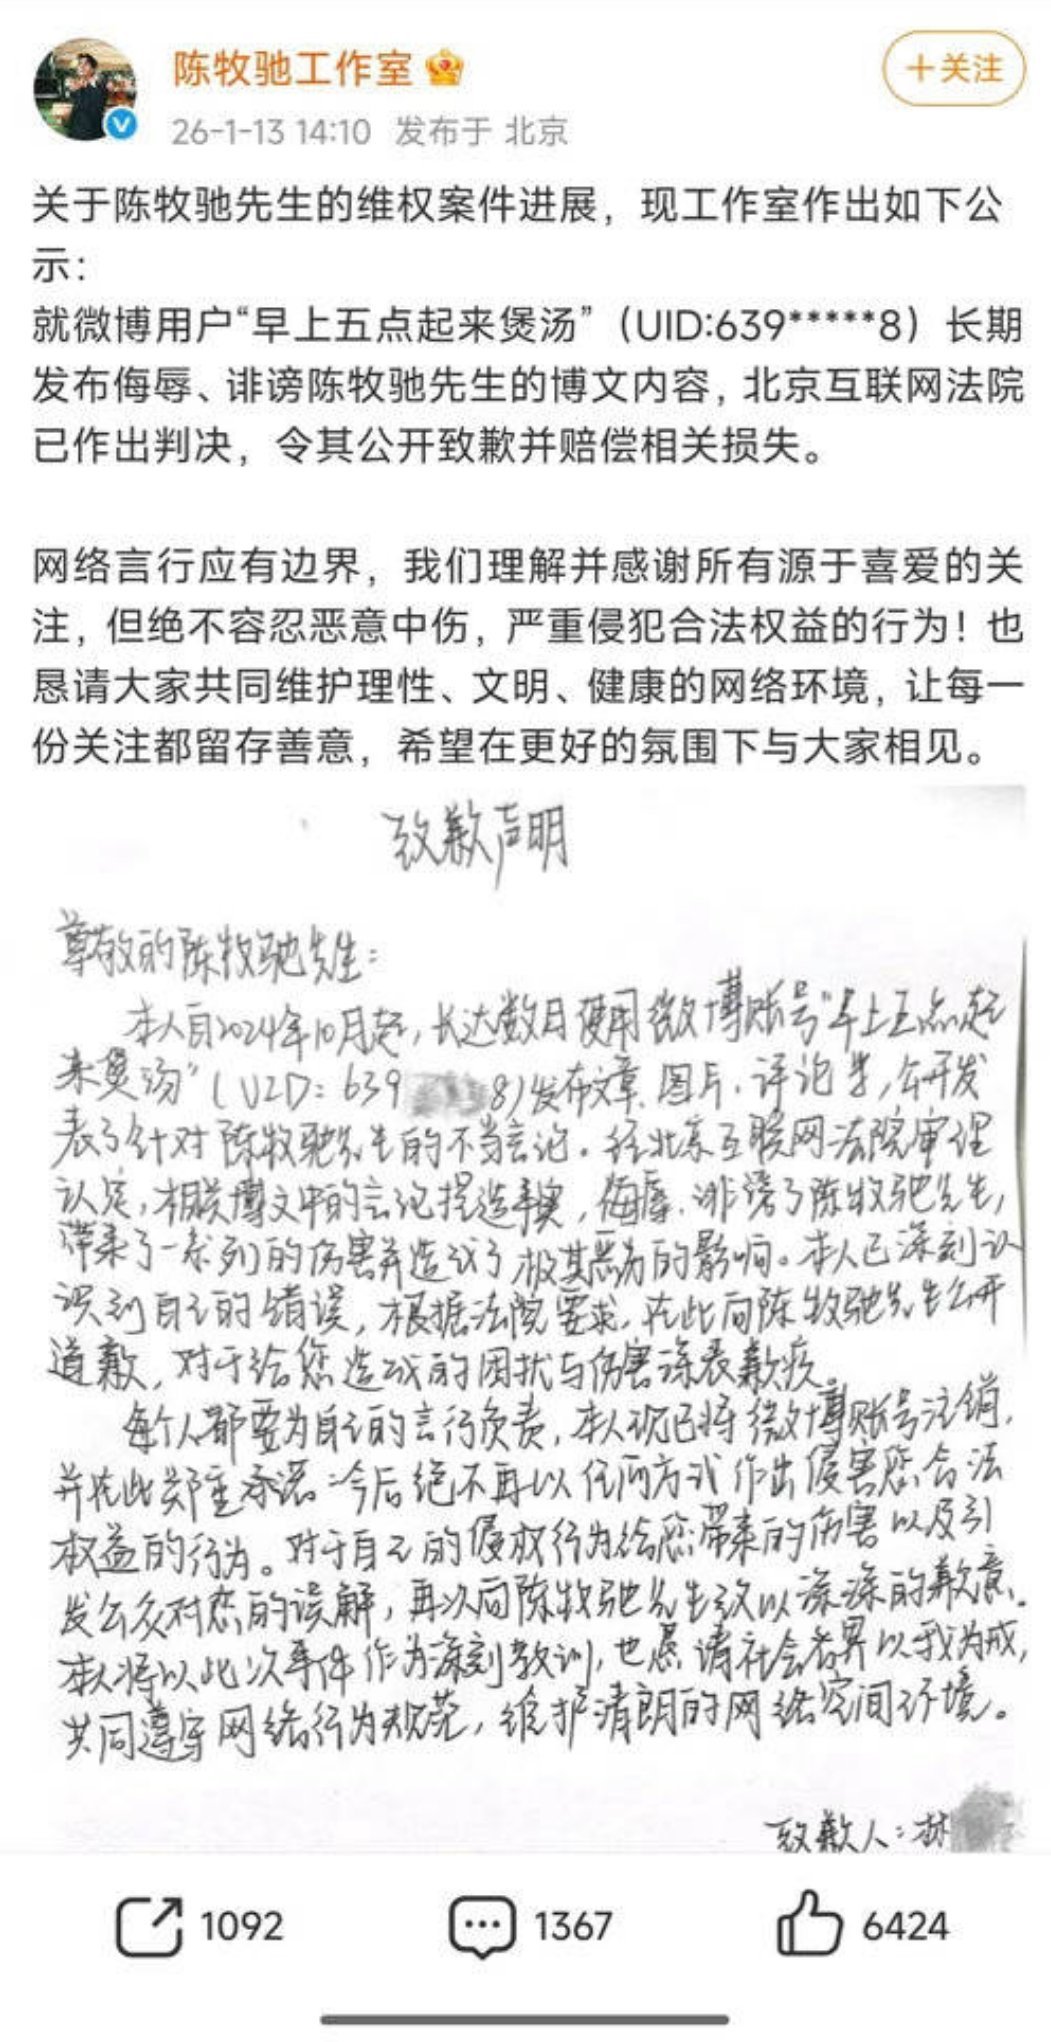 陈牧驰工作室
+关注
26-1-13 14:10 发布于 北京
关于陈牧驰先生的维权案件进展，现工作室作出如下公
示：
就微博用户“早上五点起来煲汤”（UID:639*****8）长期
发布侮辱、诽谤陈牧驰先生的博文内容，北京互联网法院
已作出判决，令其公开致歉并赔偿相关损失。
网络言行应有边界，我们理解并感谢所有源于喜爱的关
注，但绝不容忍恶意中伤，严重侵犯合法权益的行为！也
恳请大家共同维护理性、文明、健康的网络环境，让每一
份关注都留存善意，希望在更好的氛围下与大家相见。
致歉声明
尊敬的陈牧驰先生：
本人自2024年10月起，长达数月使用微博账号“早上五点起
来煲汤”（UID：639 8)发布文章、图片、评论等，公开发
表了针对陈牧驰先生的不当言论。经北京互联网法院审理
认定，相关博文中的言论捏造事实，侮辱、诽谤了陈牧驰先生，
带来了一系列的伤害并造成了极其恶劣的影响。本人已深刻认
识到自己的错误，根据法院要求，在此向陈牧驰先生公开
道歉，对于给您造成的困扰与伤害深表歉疚。
每个人都要为自己的言行负责，本人现已将微博账号注销，
并在此郑重承诺：今后绝不再以任何方式作出侵害您合法
权益的行为。对于自己的侵权行为给您带来的伤害以及引
发公众对您的误解，再次向陈牧驰先生致以深深的歉意。
本人将以此次事件作为深刻教训，也恳请社会各界以我为戒，
共同遵守网络行为规范，维护清朗的网络空间环境。
致歉人：林
1092
1367
6424